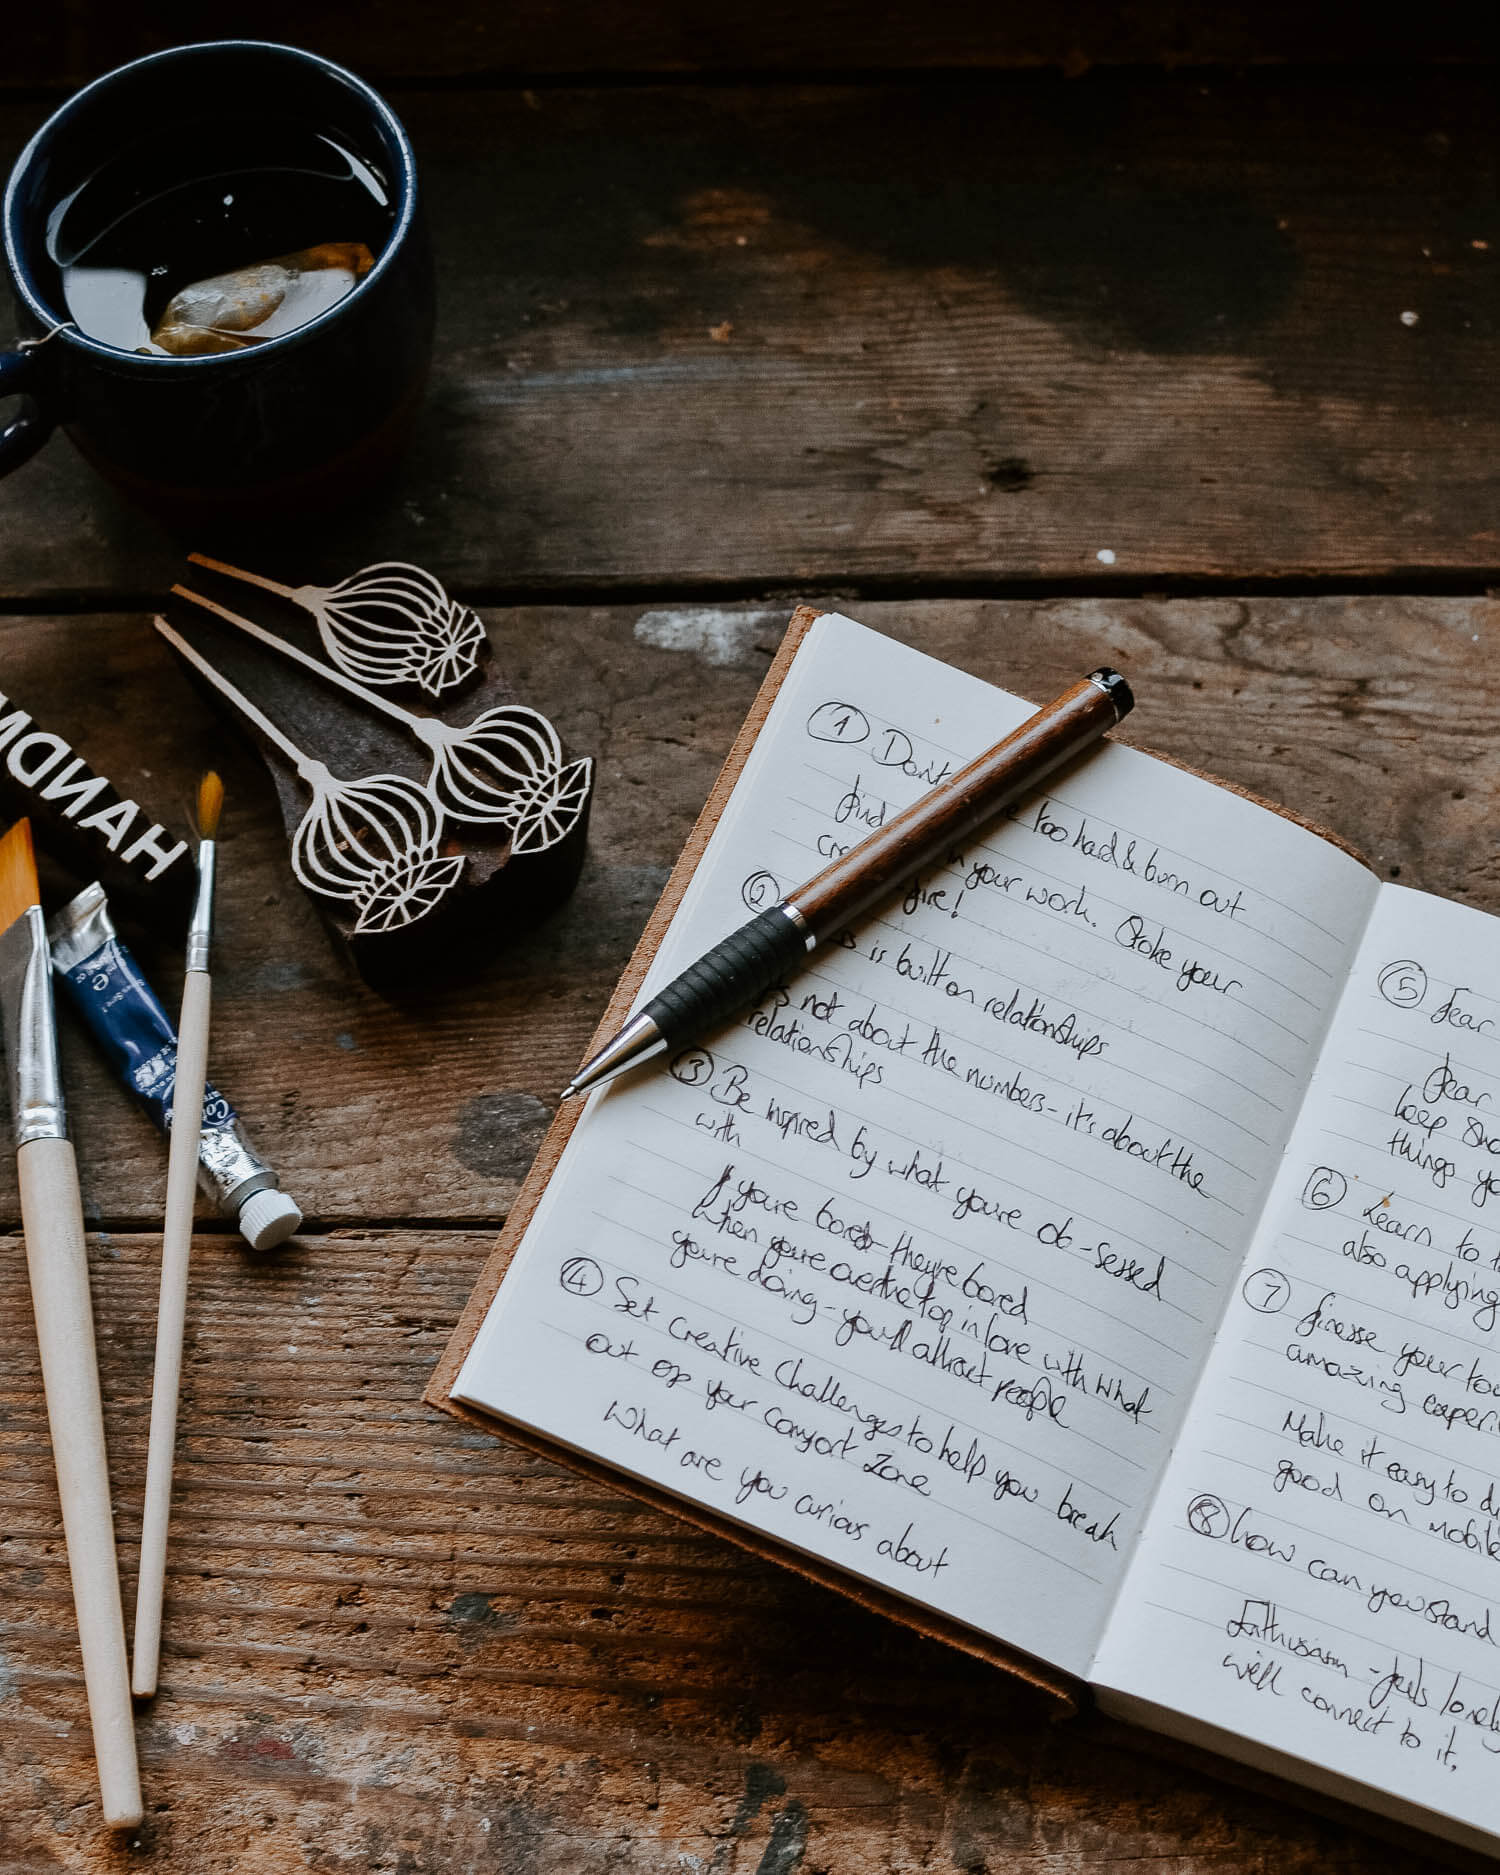 HANDM
① Don't too hard & burn out
find in your work. Stoke your
fire!
② is built on relationships
it's not about the numbers - it's about the
relationships
③ Be inspired by what you're ob-sessed
with
If you're bored - they're bored
When you're over the top in love with what
you're doing - you'll attract people
④ Set creative challenges to help you break
out of your comfort zone
What are you curious about
⑤ Fear
Fear
keep
things
⑥ Learn to
also applying
⑦ finesse your
amazing
Make it easy to
good on mobile
⑧ how can you stand
Enthusiasm - feels lonely
we'll connect to it.